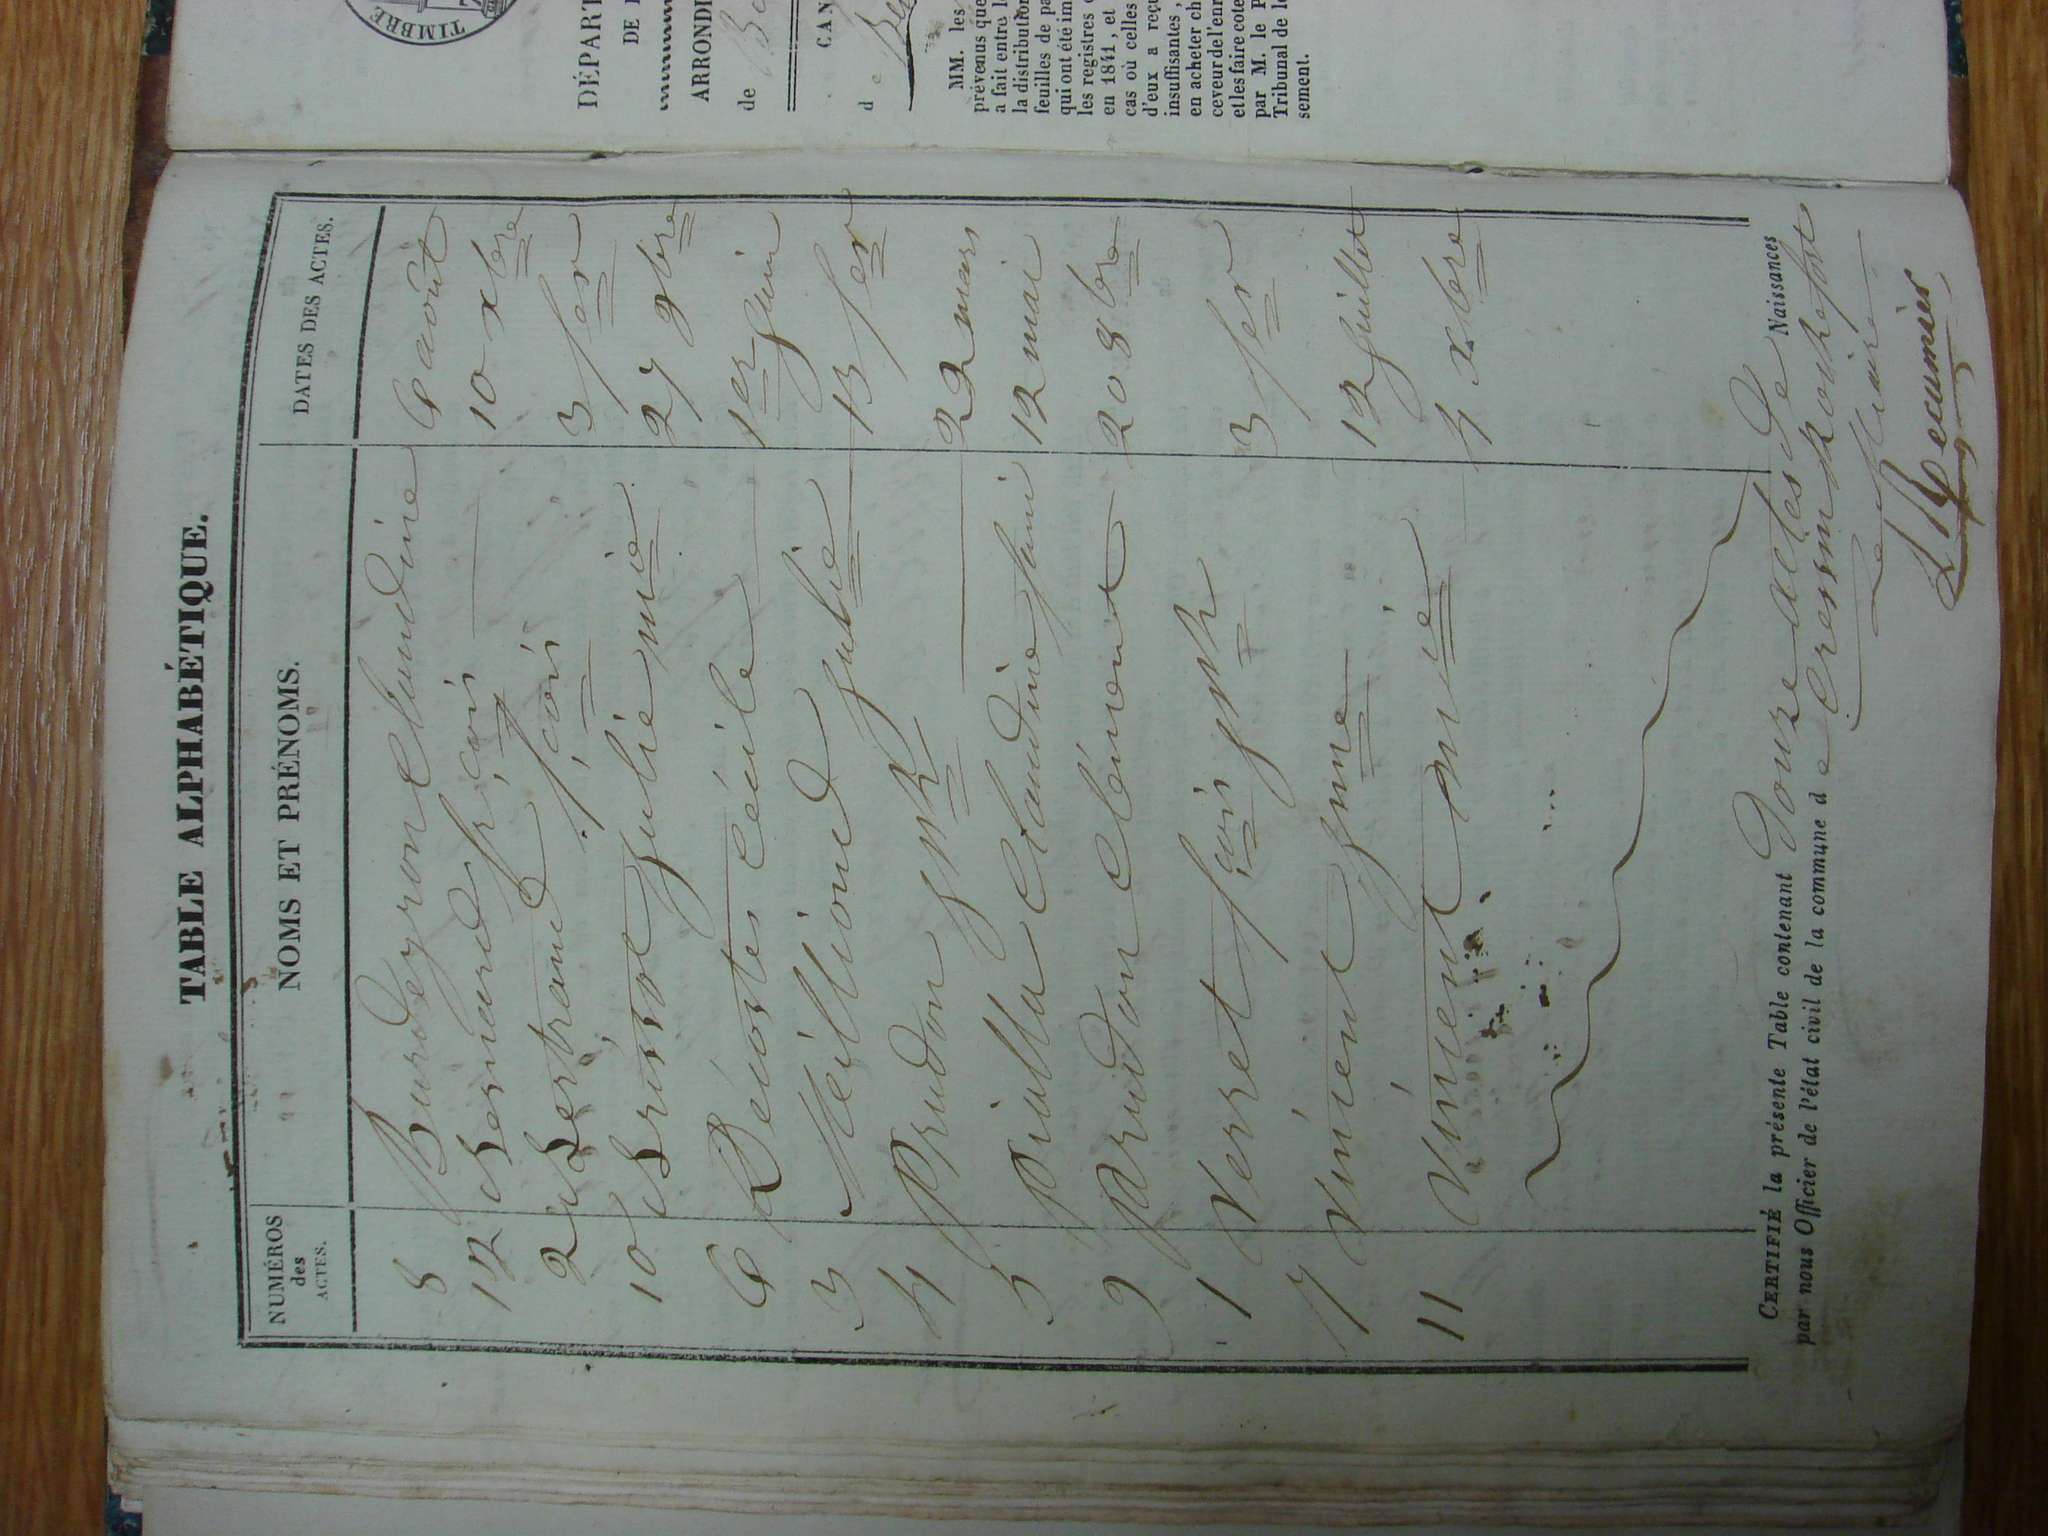 TABLE ALPHABÉTIQUE.
NUMÉROS des ACTES. NOMS ET PRÉNOMS. DATES DES ACTES.
8 Burdeyron Claudine 6 août
12 Bernard f.çois 10 xbre
2 Bertrand f.çois 3 fer
10 Brissot Julie mie 27 9bre
6 Benoste Cécile 1er juin
3 Meillioud Julie 13 fer
4 Prudon Jph 22 mars
5 Pialla Claudine fani 12 mai
9 Prudon Clément 20 8bre
1 Verret f.çois Jph 3 fer
7 Vinient Jnne 12 juillet
11 Vinient mie 4 xbre
CERTIFIÉ la présente Table contenant Douze actes de Naissances
par nous Officier de l'état civil de la commune de Cressin Rochefort
Le Maire
L Recamier
TIMBRE
DÉPART
DE L
ARRONDI
de
CAN
d
MM. les
prévenus que
a fait entre l
la distribution
feuilles de pa
qui ont été im
les registres
en 1841, et
cas où celles
d'eux a reçu
insuffisantes,
en acheter ch
ceveur de l'enr
et les faire cote
par M. le P
Tribunal de l
sement.